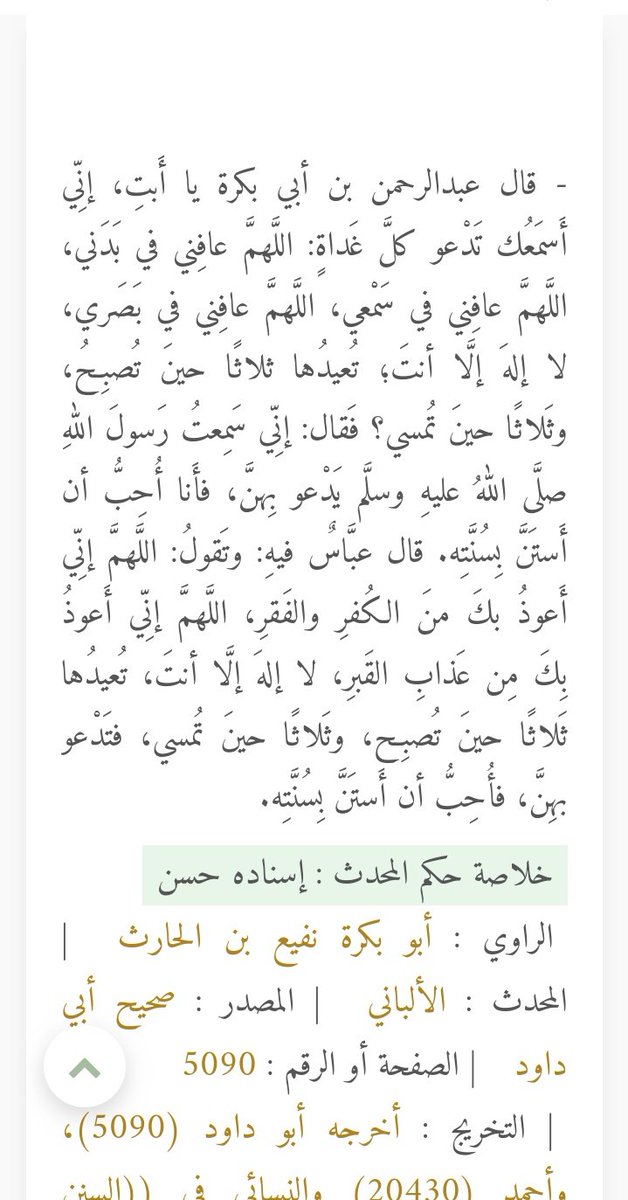 - قال عبدالرحمن بن أبي بكرة يا أَبتِ، إنِّي
أَسمَعُك تَدْعو كلَّ غَداةٍ: اللَّهمَّ عافِني في بَدَني،
اللَّهمَّ عافِني في سَمْعي، اللَّهمَّ عافِني في بَصَري،
لا إلهَ إلَّا أنتَ؛ تُعيدُها ثلاثًا حينَ تُصبِحُ،
وثَلاثًا حينَ تُمسي؟ فَقال: إنِّي سَمِعتُ رَسولَ اللهِ
صلَّى اللهُ عليهِ وسلَّم يَدْعو بِهنَّ، فأَنا أُحِبُّ أن
أَستَنَّ بِسُنَّتِه. قال عبَّاسٌ فيهِ: وتَقولُ: اللَّهمَّ إنِّي
أَعوذُ بكَ منَ الكُفرِ والفَقرِ، اللَّهمَّ إنِّي أَعوذُ
بِكَ مِن عَذابِ القَبرِ، لا إلهَ إلَّا أنتَ، تُعيدُها
ثَلاثًا حينَ تُصبِح، وثَلاثًا حينَ تُمسي، فتَدْعو
بهِنَّ، فأُحِبُّ أن أَستَنَّ بِسُنَّتِه.
خلاصة حكم المحدث : إسناده حسن
الراوي : أبو بكرة نفيع بن الحارث |
المحدث : الألباني | المصدر : صحيح أبي
داود | الصفحة أو الرقم : 5090
| التخريج : أخرجه أبو داود (5090)،
وأحمد (20430) والنسائي في ((السنن